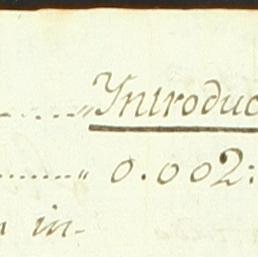 ....."Introduc
......." 0.002:
n in-